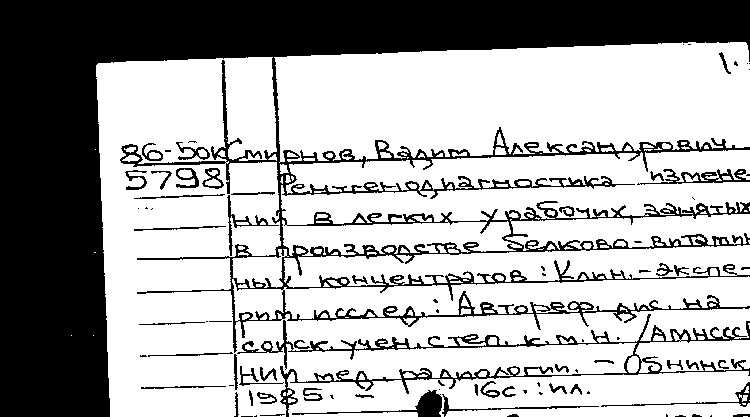 1.
86-5ок Смирнов, Вадим Александрович.
5798 Рентгенодиагностика измене-
ний в легких у рабочих, занятых
в производстве белково-витамин
ных концентратов : Клин.-экспе-
рим. исслед. : Автореф. дис. на
соиск. учен. степ. к. м. н. / АМН СССР
НИИ мед. радиологии. – Обнинск,
1985. – 16с. : ил.